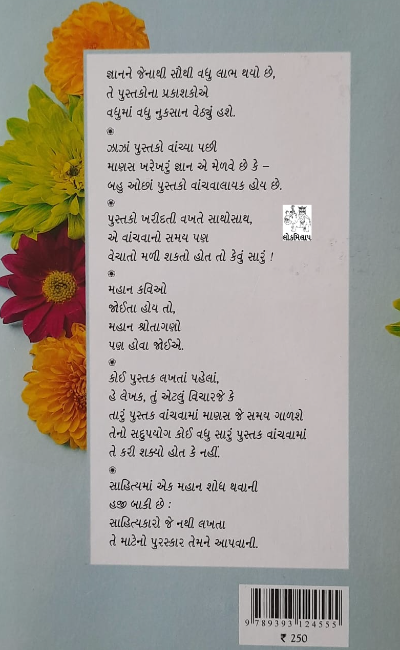 જ્ઞાનને જેનાથી સૌથી વધુ લાભ થયો છે,
તે પુસ્તકોના પ્રકાશકોએ
વધુમાં વધુ નુકસાન વેઠ્યું હશે.
ઝાઝાં પુસ્તકો વાંચ્યા પછી
માણસ ખરેખરું જ્ઞાન એ મેળવે છે કે –
બહુ ઓછાં પુસ્તકો વાંચવાલાયક હોય છે.
પુસ્તકો ખરીદતી વખતે સાથોસાથ,
એ વાંચવાનો સમય પણ
વેચાતો મળી શકતો હોત તો કેવું સારું !
લોકમિલાપ
મહાન કવિઓ
જોઈતા હોય તો,
મહાન શ્રોતાગણો
પણ હોવા જોઈએ.
કોઈ પુસ્તક લખતાં પહેલાં,
હે લેખક, તું એટલું વિચારજે કે
તારું પુસ્તક વાંચવામાં માણસ જે સમય ગાળશે
તેનો સદુપયોગ કોઈ વધુ સારું પુસ્તક વાંચવામાં
તે કરી શક્યો હોત કે નહીં.
સાહિત્યમાં એક મહાન શોધ થવાની
હજી બાકી છે :
સાહિત્યકારો જે નથી લખતા
તે માટેનો પુરસ્કાર તેમને આપવાની.
9 789393 124555
₹ 250